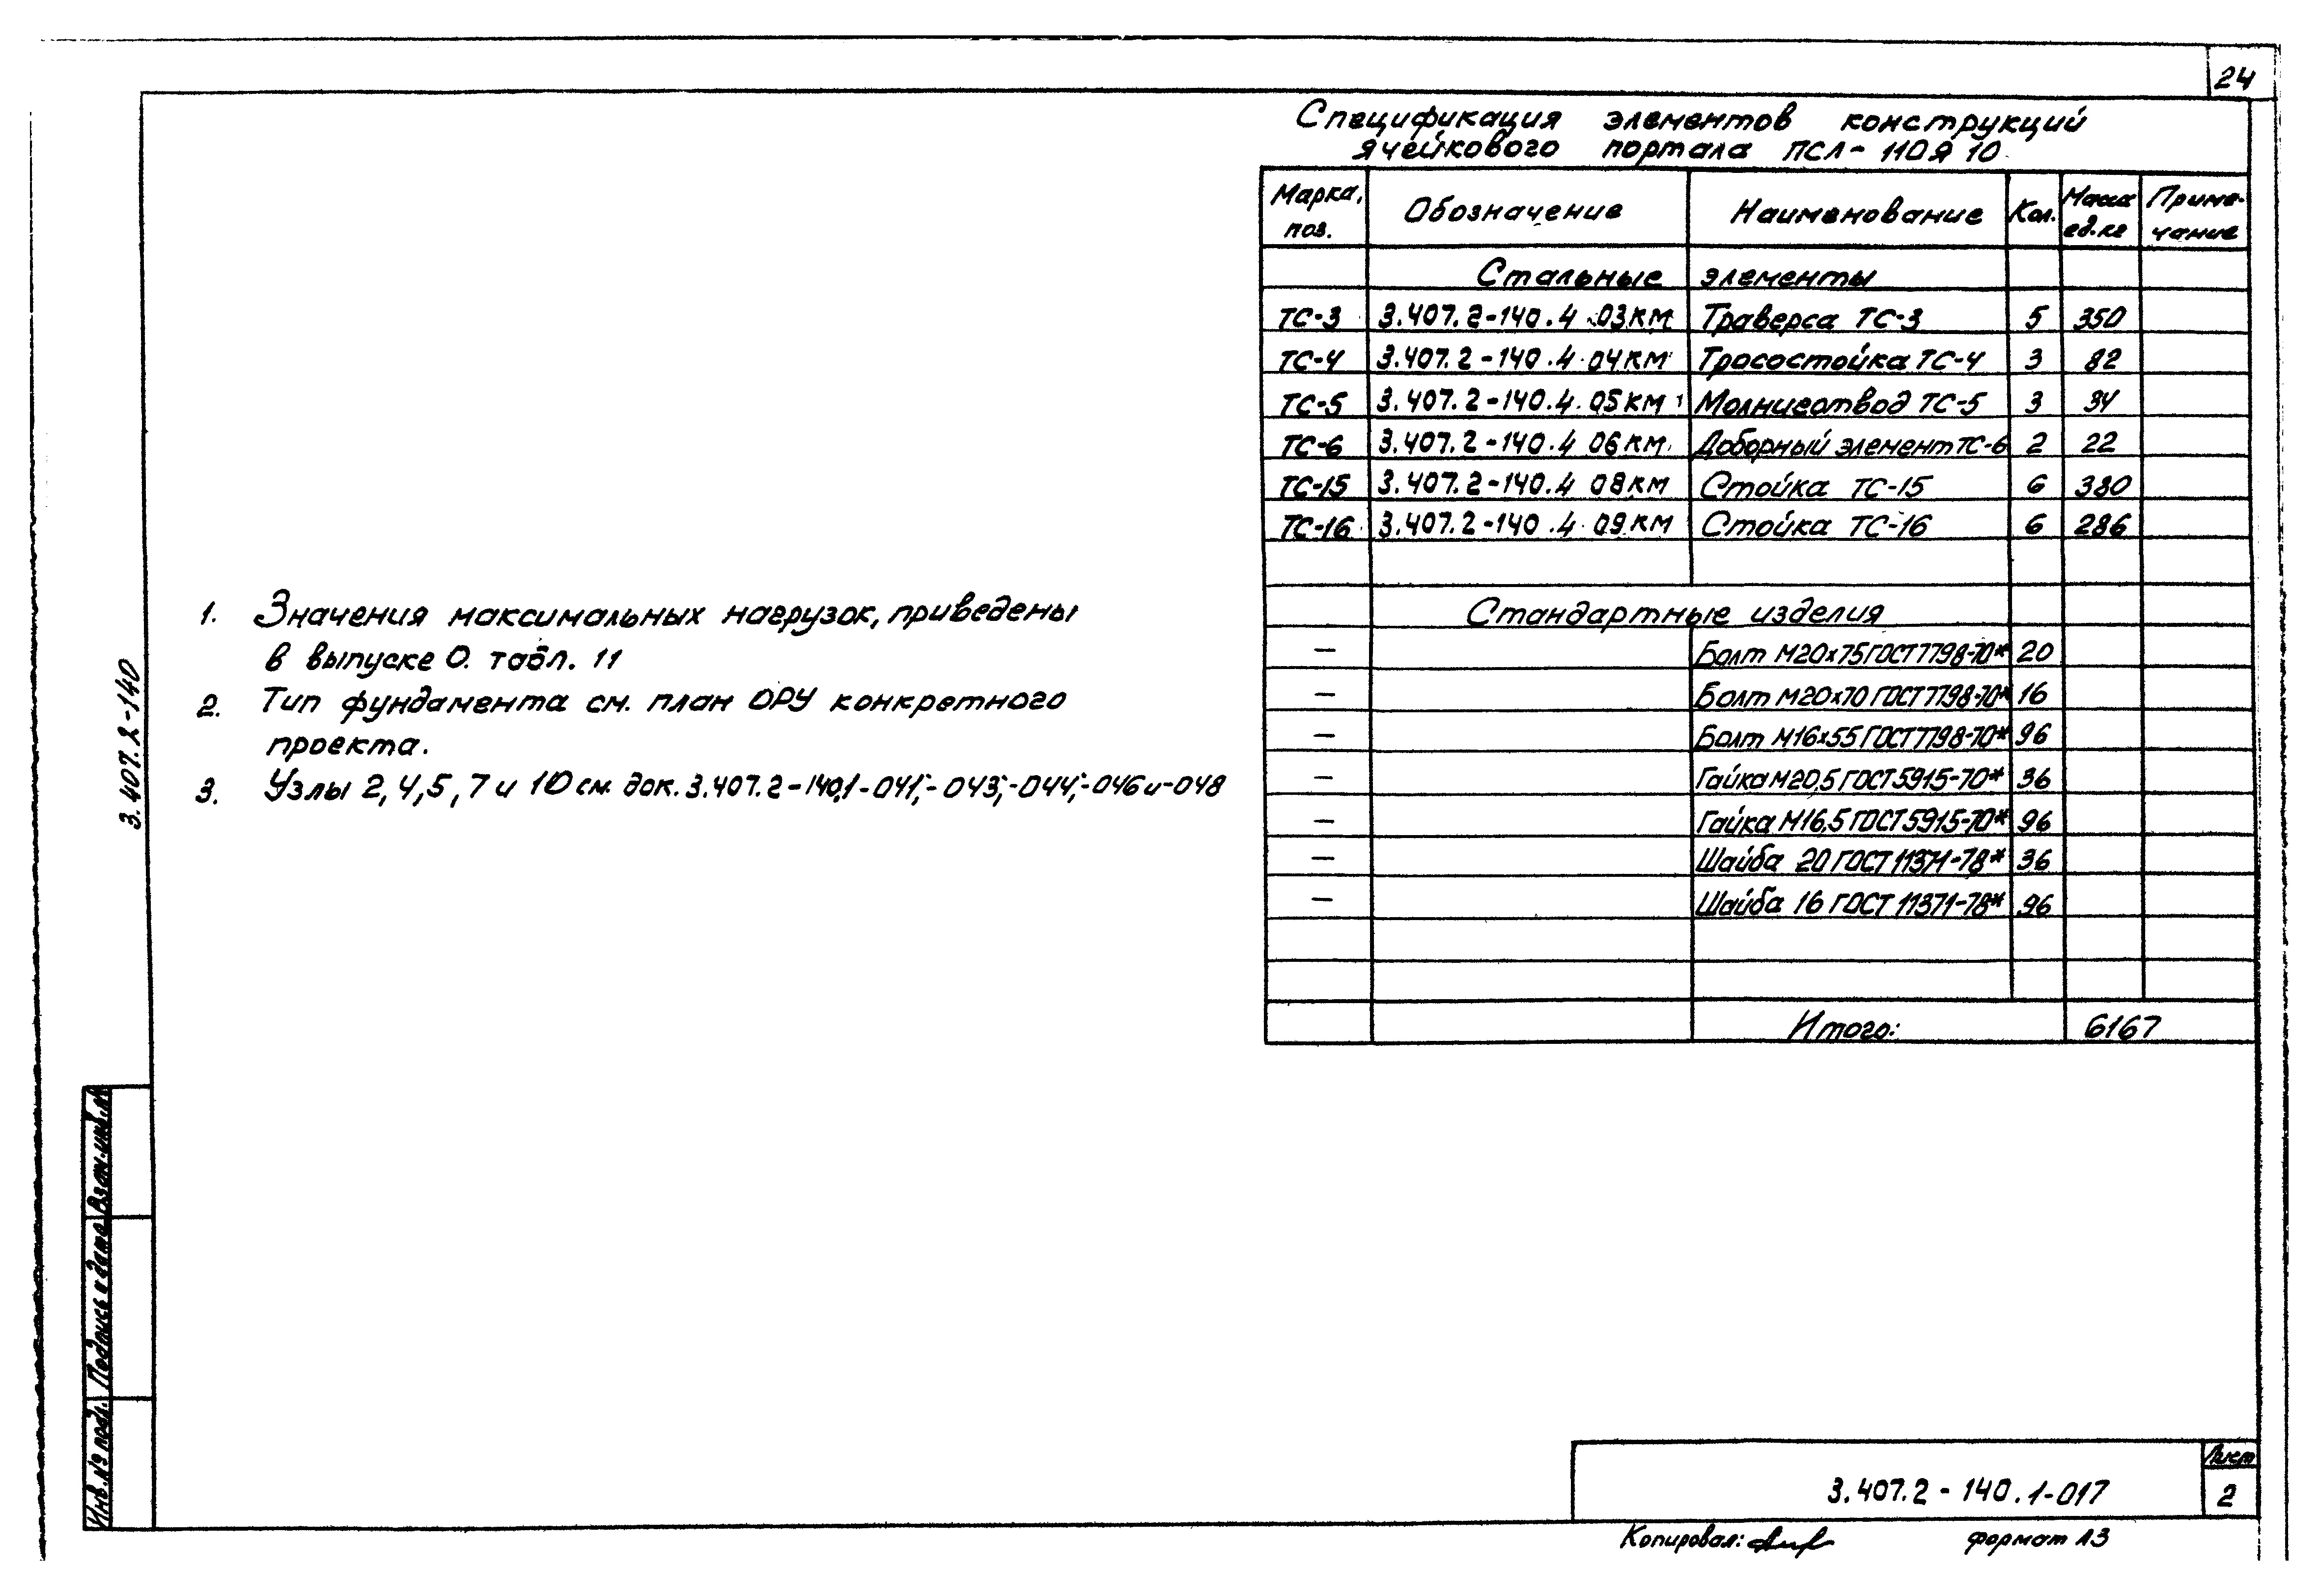 24
Спецификация элементов конструкций
ячейкового портала ПСЛ-110Я10
Марка, поз. Обозначение Наименование Кол. Масса ед.кг Приме-чание
Стальные элементы
ТС-3 3.407.2-140.4 03КМ Траверса ТС-3 5 350
ТС-4 3.407.2-140.4 04КМ Тросостойка ТС-4 3 82
ТС-5 3.407.2-140.4 05КМ Молниеотвод ТС-5 3 34
ТС-6 3.407.2-140.4 06КМ Доборный элемент ТС-6 2 22
ТС-15 3.407.2-140.4 08КМ Стойка ТС-15 6 380
ТС-16 3.407.2-140.4 09КМ Стойка ТС-16 6 286
Стандартные изделия
— Болт М20х75 ГОСТ 7798-70* 20
— Болт М20х70 ГОСТ 7798-70* 16
— Болт М16х55 ГОСТ 7798-70* 96
— Гайка М20,5 ГОСТ 5915-70* 36
— Гайка М16,5 ГОСТ 5915-70* 96
— Шайба 20 ГОСТ 11371-78* 36
— Шайба 16 ГОСТ 11371-78* 96
Итого: 6167
1. Значения максимальных нагрузок, приведены
в выпуске 0. табл. 11
2. Тип фундамента см. план ОРУ конкретного
проекта.
3. Узлы 2, 4, 5, 7 и 10 см. док. 3.407.2-140.1-041;-043;-044;-046 и -048
3.407.2-140
Взам.инв.№
Подпись и дата
Инв.№ подл.
3.407.2-140.1-017
Лист
2
Копировал:
формат А3